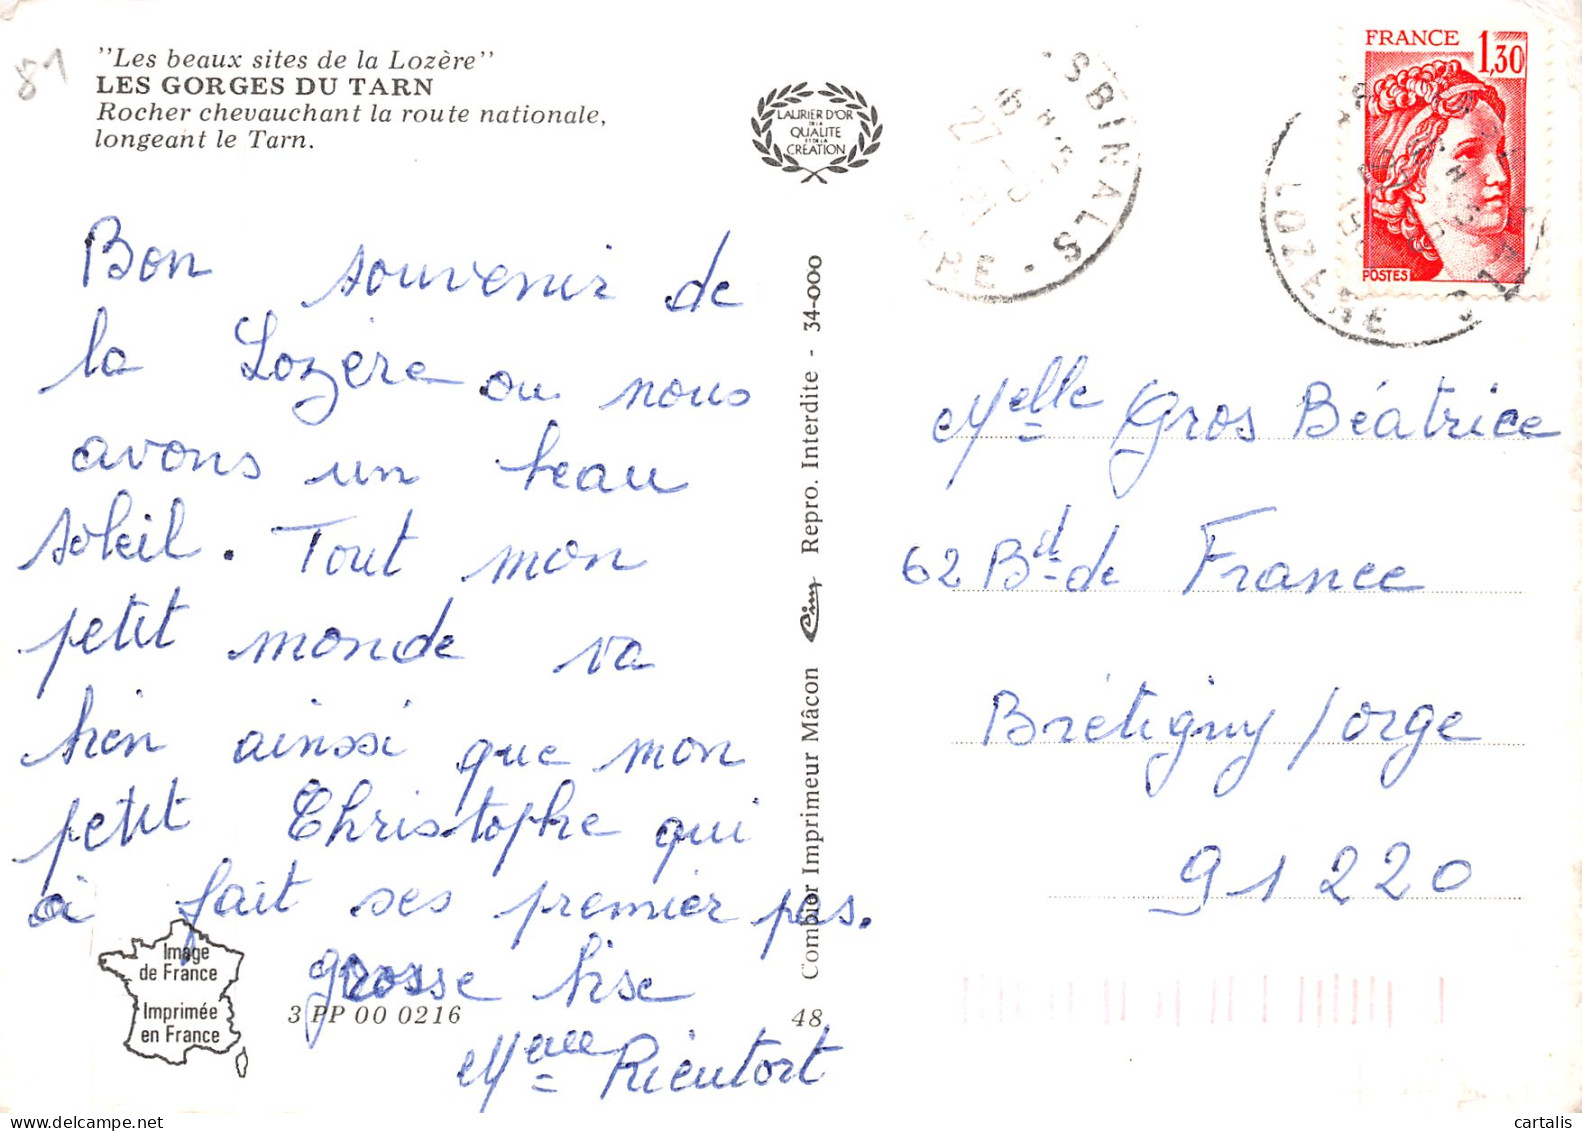 81
"Les beaux sites de la Lozère"
LES GORGES DU TARN
Rocher chevauchant la route nationale,
longeant le Tarn.
LAURIER D'OR
DE LA
QUALITE
ET DE LA
CRÉATION
Bon souvenir de
la Lozère ou nous
avons un beau
soleil. Tout mon
petit monde va
bien ainsi que mon
petit Christophe qui
à fait ses premier pas.
grosse bise
Mme Rieutort
Image
de France
Imprimée
en France
3 PP 00 0216
48
Combier Imprimeur Mâcon Cim Repro. Interdite - 34-000
SBINALS
LOZERE
FRANCE
1,30
POSTES
Melle Gros Béatrice
62 Bd de France
Brétigny / orge
91220
cartalis